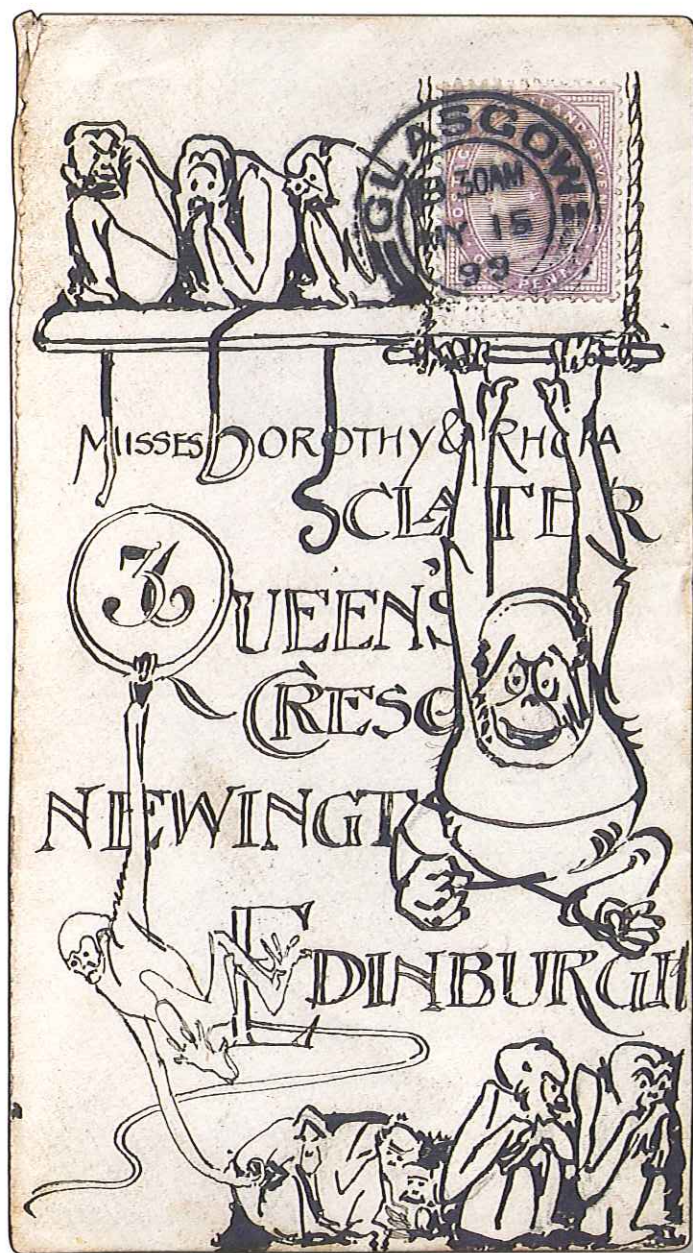 GLASGOW
30AM
MY 15
99
MISSES DOROTHY & RHODA
SCLATER
QUEEN'S
CRESC
NEWINGT
EDINBURGH